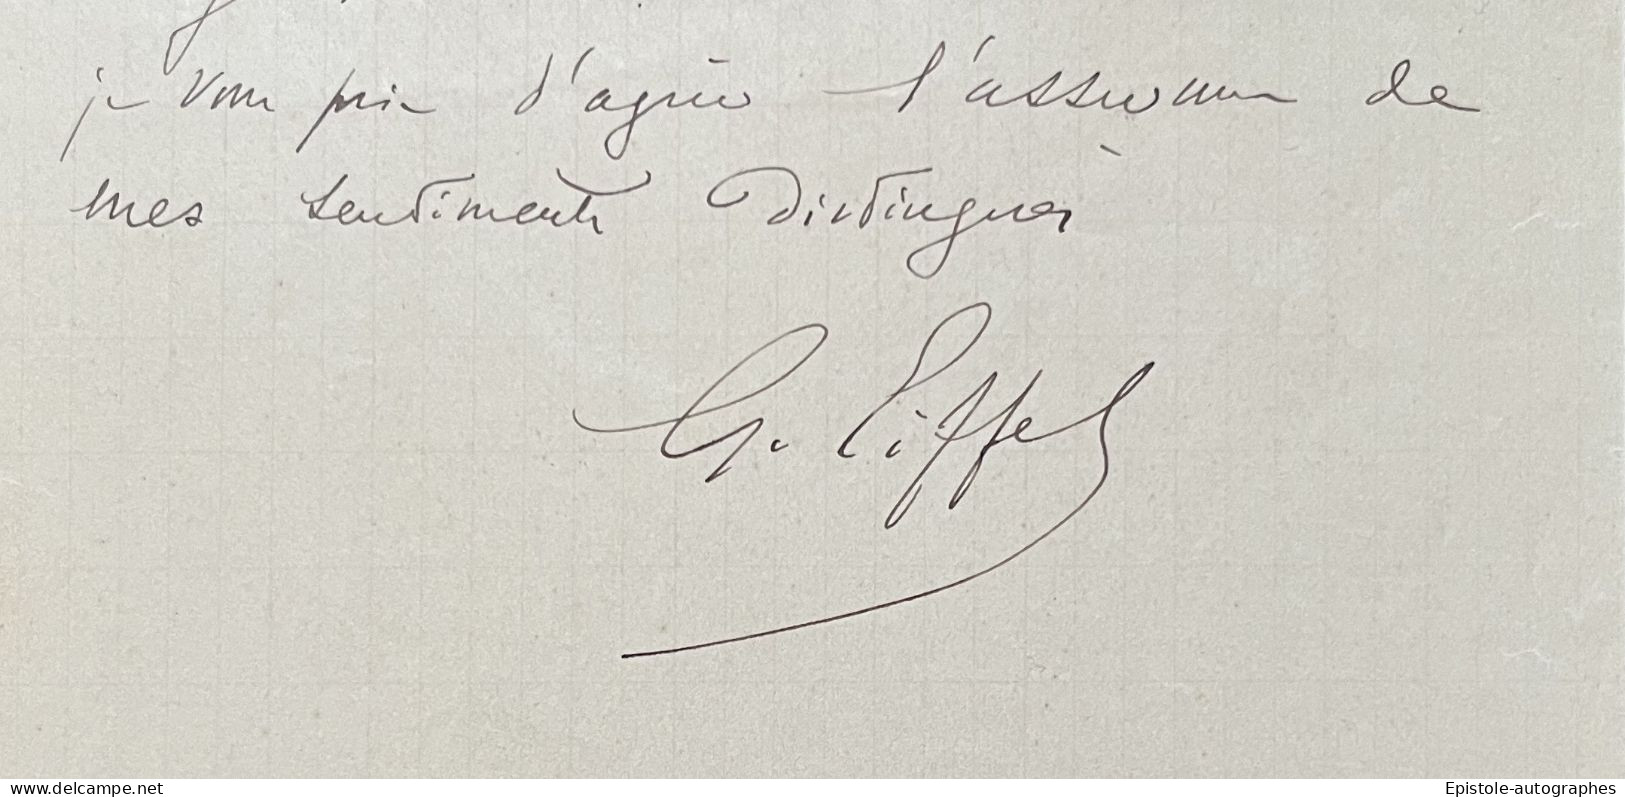 je vous prie d'agréer l'assurance de
mes sentiments distingués
G. Eiffel
www.delcampe.net
Epistole-autographes